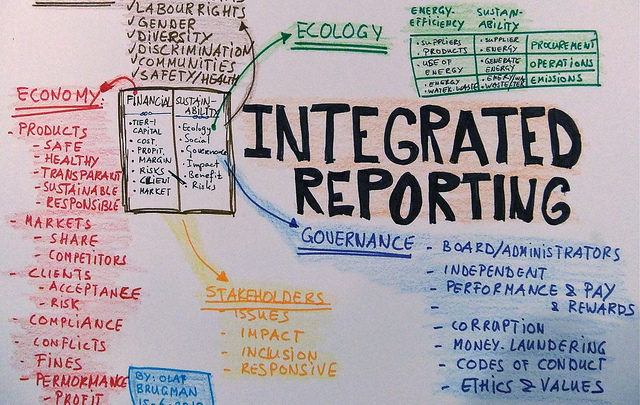 ✓LABOUR RIGHTS
✓GENDER
✓DIVERSITY
✓DISCRIMINATION
✓COMMUNITIES
✓SAFETY/HEALTH
ECOLOGY
ENERGY-EFFICIENCY
SUSTAIN-ABILITY
• SUPPLIERS PRODUCTS
• SUPPLIER ENERGY
PROCUREMENT
USE OF ENERGY
• GENERATE ENERGY
OPERATIONS
• ENERGY
• WATER-WASTE
EMISSIONS
ECONOMY:
- PRODUCTS
- SAFE
- HEALTHY
- TRANSPARANT
- SUSTAINABLE
- RESPONSIBLE
- MARKETS
- SHARE
- COMPETITORS
- CLIENTS
- ACCEPTANCE
- RISK
- COMPLIANCE
- CONFLICTS
- FINES
- PERMORMANCE
- PROFIT
FINANCIAL
• TIER-1 CAPITAL
• COST
• PROFIT
• MARGIN
• RISKS
• CLIENT
• MARKET
SUSTAIN-ABILITY
• Ecology
• Social
• Governance
• Impact
• Benefit
• Risks
INTEGRATED
REPORTING
GOVERNANCE
- BOARD/ADMINISTRATORS
- INDEPENDENT
- PERFORMANCE & PAY
- & REWARDS
- CORRUPTION
- MONEY-LAUNDERING
- CODES OF CONDUCT
- ETHICS & VALUES
STAKEHOLDERS
- ISSUES
- IMPACT
- INCLUSION
- RESPONSIVE
BY: OLAF
BRUGMAN